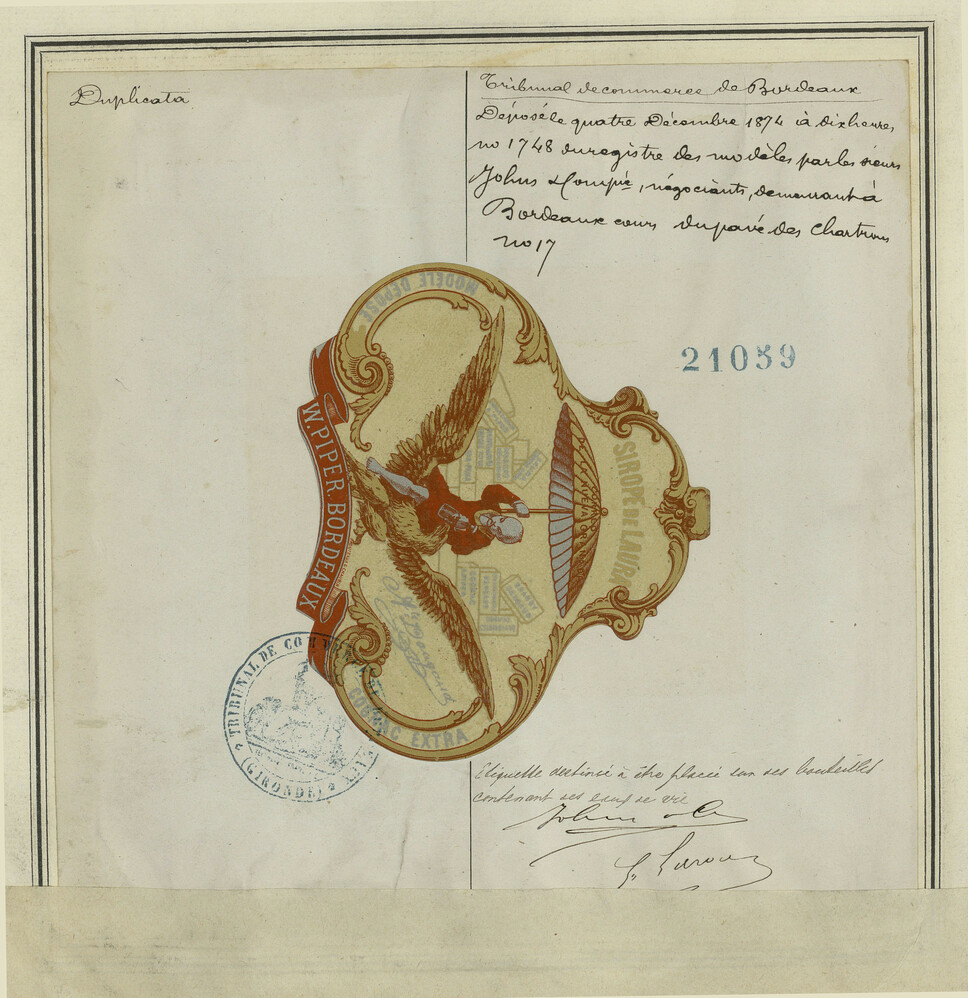 Duplicata
Tribunal de commerce de Bordeaux
Déposé le quatre Décembre 1874 à dix heures
no 1748 du registre des modèles par les sieurs
Johns & Compie, négociants, demeurant à
Bordeaux cours du pavé des Chartrons
no 17
21059
MODÈLE DÉPOSÉ
W. PIPER. BORDEAUX
SIROP E DE LAURA
COGNAC EXTRA
TRIBUNAL DE COMMERCE
(GIRONDE)
Etiquette destinée à être placée sur ses bouteilles
contenant ses eaux de vie
John & Co